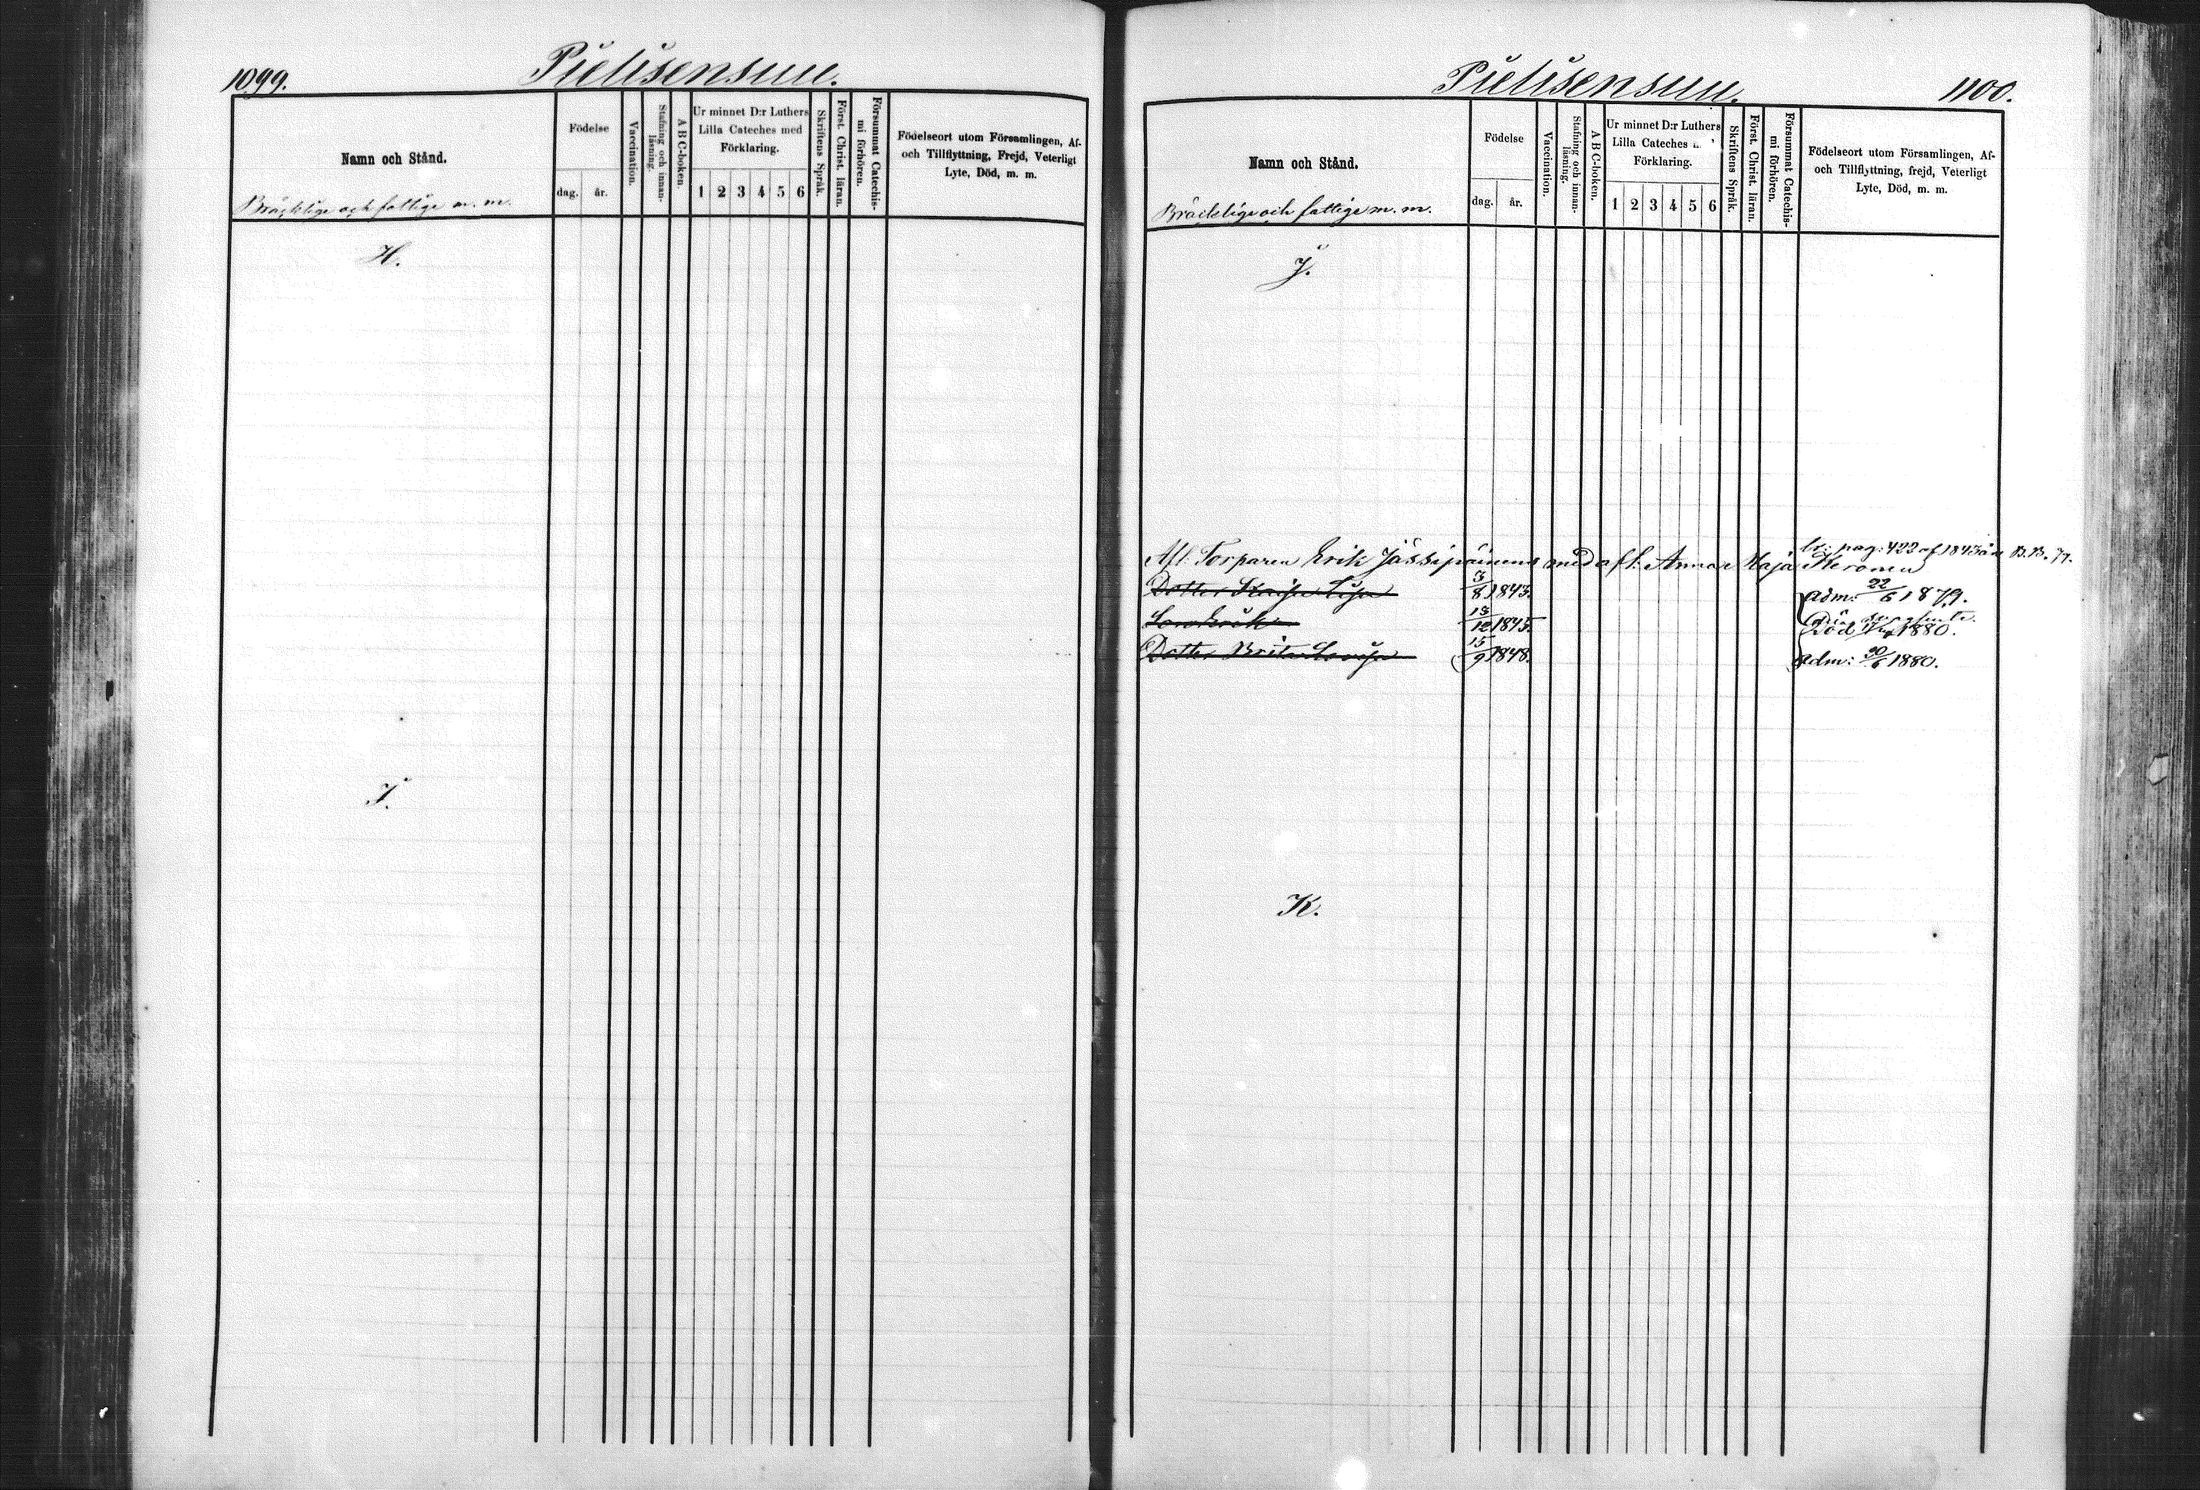 1099.
Pielisensuu.
Namn och Stånd.
Bräcklige och fattige m. m.
Födelse
dag.
år.
Vaccination.
Stafning och innan-
läsning.
A B C-boken
Ur minnet D:r Luthers
Lilla Cateches med
Förklaring.
1 2 3 4 5 6
Skriftens Språk.
Först. Christ. läran.
Försummat Catechis-
mi förhören.
Födelseort utom Församlingen, Af-
och Tillflyttning, Frejd, Veterligt
Lyte, Död, m. m.
H.
I.
Pielisensuu.
1100.
Namn och Stånd.
Bräcklige och fattige m. m.
Födelse
dag.
år.
Vaccination.
Stafning och innan-
läsning.
A B C-boken.
Ur minnet D:r Luthers
Lilla Cateches
Förklaring.
1 2 3 4 5 6
Skriftens Språk.
Först. Christ. läran.
Försummat Catechis-
mi förhören.
Födelseort utom Församlingen, Af-
och Tillflyttning, frejd, Veterligt
Lyte, Död, m. m.
J.
pag: 422 af 1843 B.B.
Afl. Torparen Erik Jässipäinens med afl. Anna Kaja Keronen
Dotter Kaisa Lisa 3/8 1843. adm: 22/6 1879.
Son Erik 13/12 1845. Död 1880.
Dotter Brita Lovisa 15/9 1848. adm: 30/6 1880.
K.